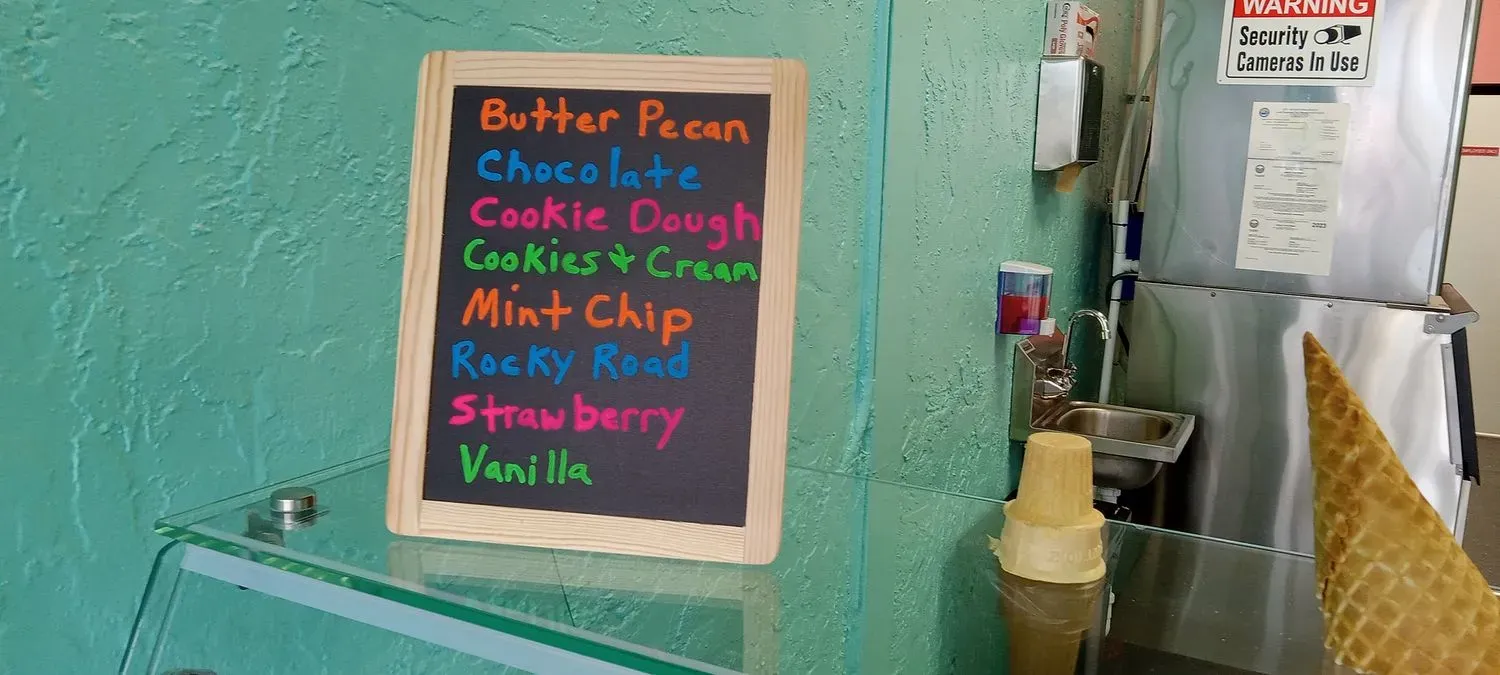 Butter Pecan
Chocolate
Cookie Dough
Cookies & Cream
Mint Chip
Rocky Road
Strawberry
Vanilla
WARNING
Security
Cameras In Use
2023